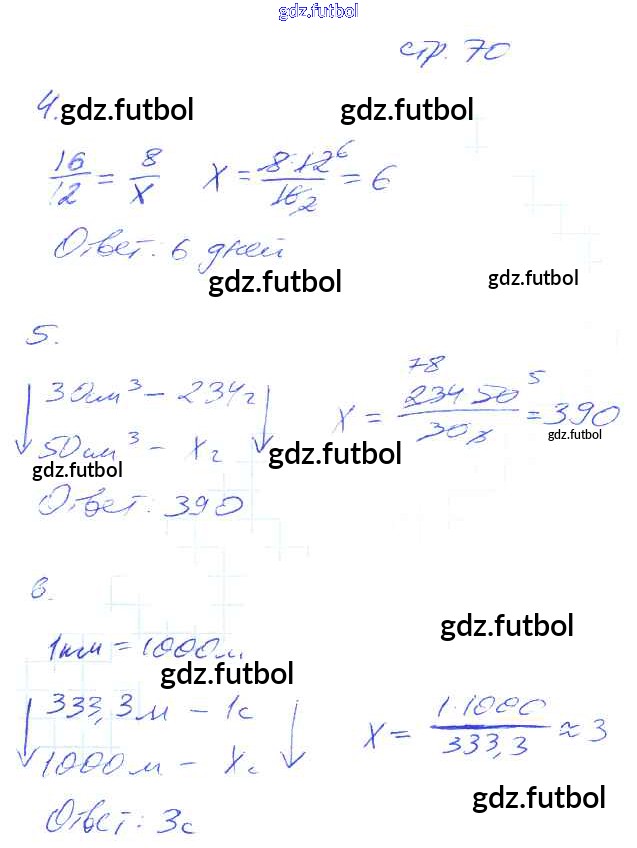 gdz.futbol
стр. 70
4. gdz.futbol gdz.futbol
16/12 = 8/x x = 8·12 6/16 2 = 6
Ответ: 6 дней
gdz.futbol gdz.futbol
5.
30см³ – 234г x = 78 234 50 5/30 3 = 390
50см³ – x г
gdz.futbol gdz.futbol gdz.futbol
Ответ: 390
6.
gdz.futbol
1км = 1000м
gdz.futbol
333,3м – 1с x = 1·1000/333,3 ≈ 3
1000м – x с
gdz.futbol
Ответ: 3с